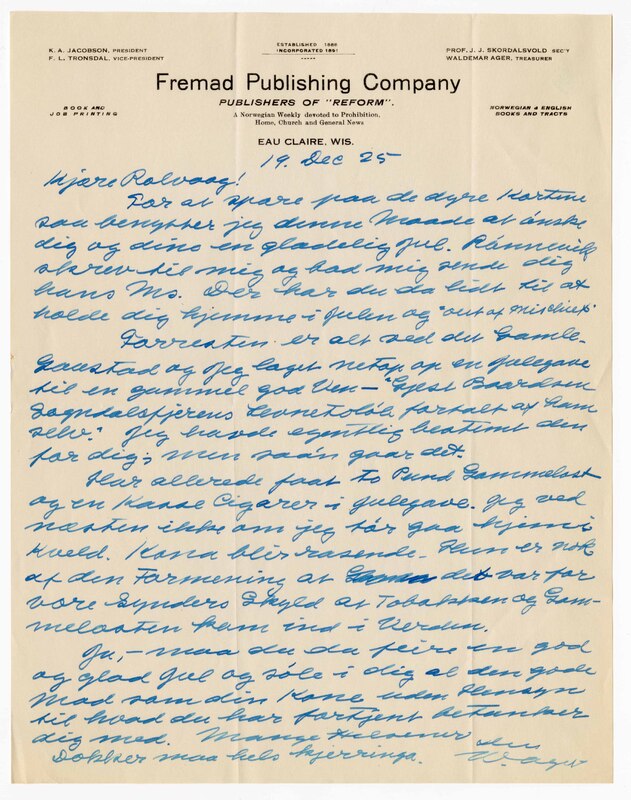 K. A. JACOBSON, PRESIDENT
F. L. TRONSDAL, VICE-PRESIDENT
ESTABLISHED 1886
INCORPORATED 1891
PROF. J. J. SKORDALSVOLD SEC'Y
WALDEMAR AGER, TREASURER
Fremad Publishing Company
PUBLISHERS OF "REFORM".
BOOK AND
JOB PRINTING
A Norwegian Weekly devoted to Prohibition,
Home, Church and General News
NORWEGIAN & ENGLISH
BOOKS AND TRACTS
EAU CLAIRE, WIS.
19. Dec 25
Kjære Rolvaag!
For at spare paa de dyre Kortene
saa benytter jeg denne Maade at ønske
dig og dine en gladelig jul. Rønnevik
skrev til mig og bad mig sende dig
hans Ms. Der har du da lidt til at
holde dig hjemme i julen og "out of mischief"
Forresten er alt ved det Gamle.
Gaustad og jeg laget netop op en julegave
til en gammel god Ven — "Gjest Baardsen
Sogndalsfjerens Levnetsløb fortalt af ham
selv." Jeg havde egentlig bestemt den
for dig; men saan gaar det.
Har allerede faat to Pund Gammelost
og en Kasse Cigarer i julegave. Jeg ved
næsten ikke om jeg tør gaa hjem i
kveld. Kona blir rasende. Hun er nok
af den Formening at det var for
vore Synders Skyld at Tobakken og Gam-
melosten kom ind i Verden.
Ja, — maa du da feire en god
og glad jul og søle i dig al den gode
Mad som din Kone uden Hensyn
til hvad du har fortjent betænker
dig med. Mange Hilsener
din
Dokker maa hels kjerringa.
W. Ager